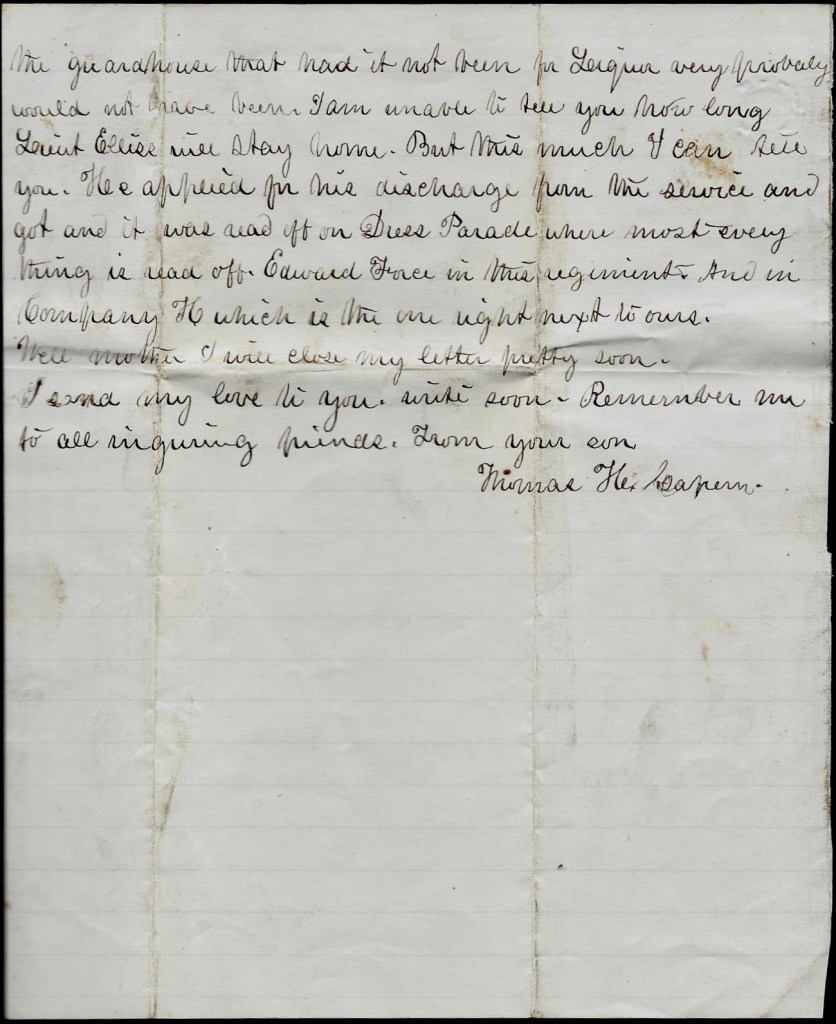 the guardhouse that had it not been for Leiquor very probaly
would not have been. I am unable to tell you how long
Leiut Ellise will stay home. But this much I can tell
you. He applied for his discharge from the service and
got and it was read off on Dress Parade where most every
thing is read off. Edward Force in this regiment. And in
Company H which is the one right next to ours.
Well mother I will close my letter pretty soon.
I send my love to you. write soon - Remember me
to all inquring friends. From your son
Thomas H.